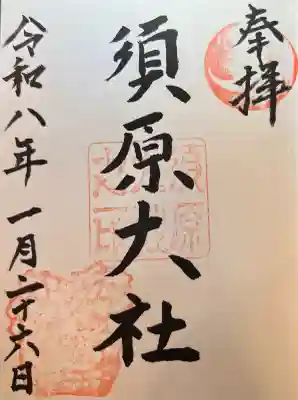 奉拝
須原大社
令和八年一月二十六日